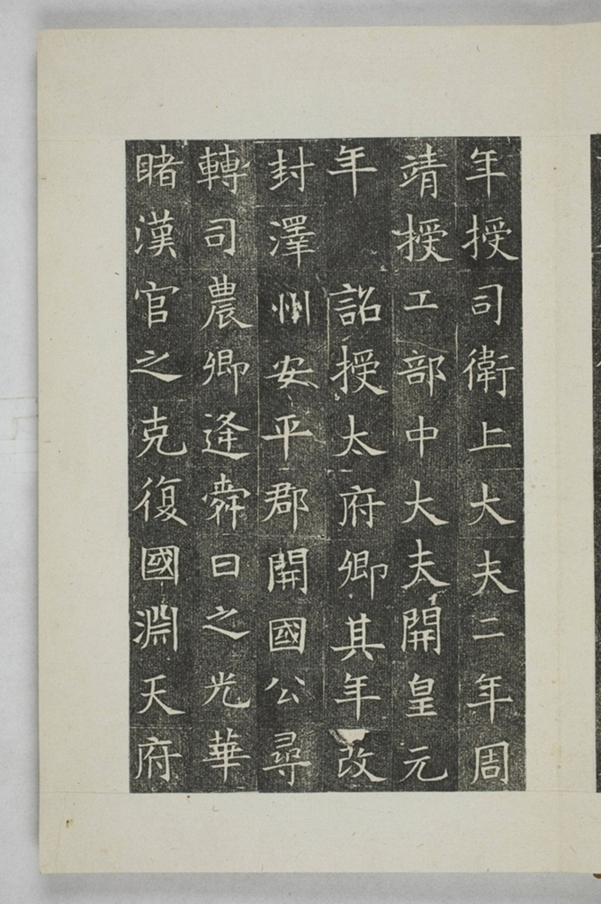 年授司衛上大夫二年周
靖授工部中大夫開皇元
年 詔授太府卿其年改
封澤州安平郡開國公尋
轉司農卿逢舜日之光華
睹漢官之克復國淵天府